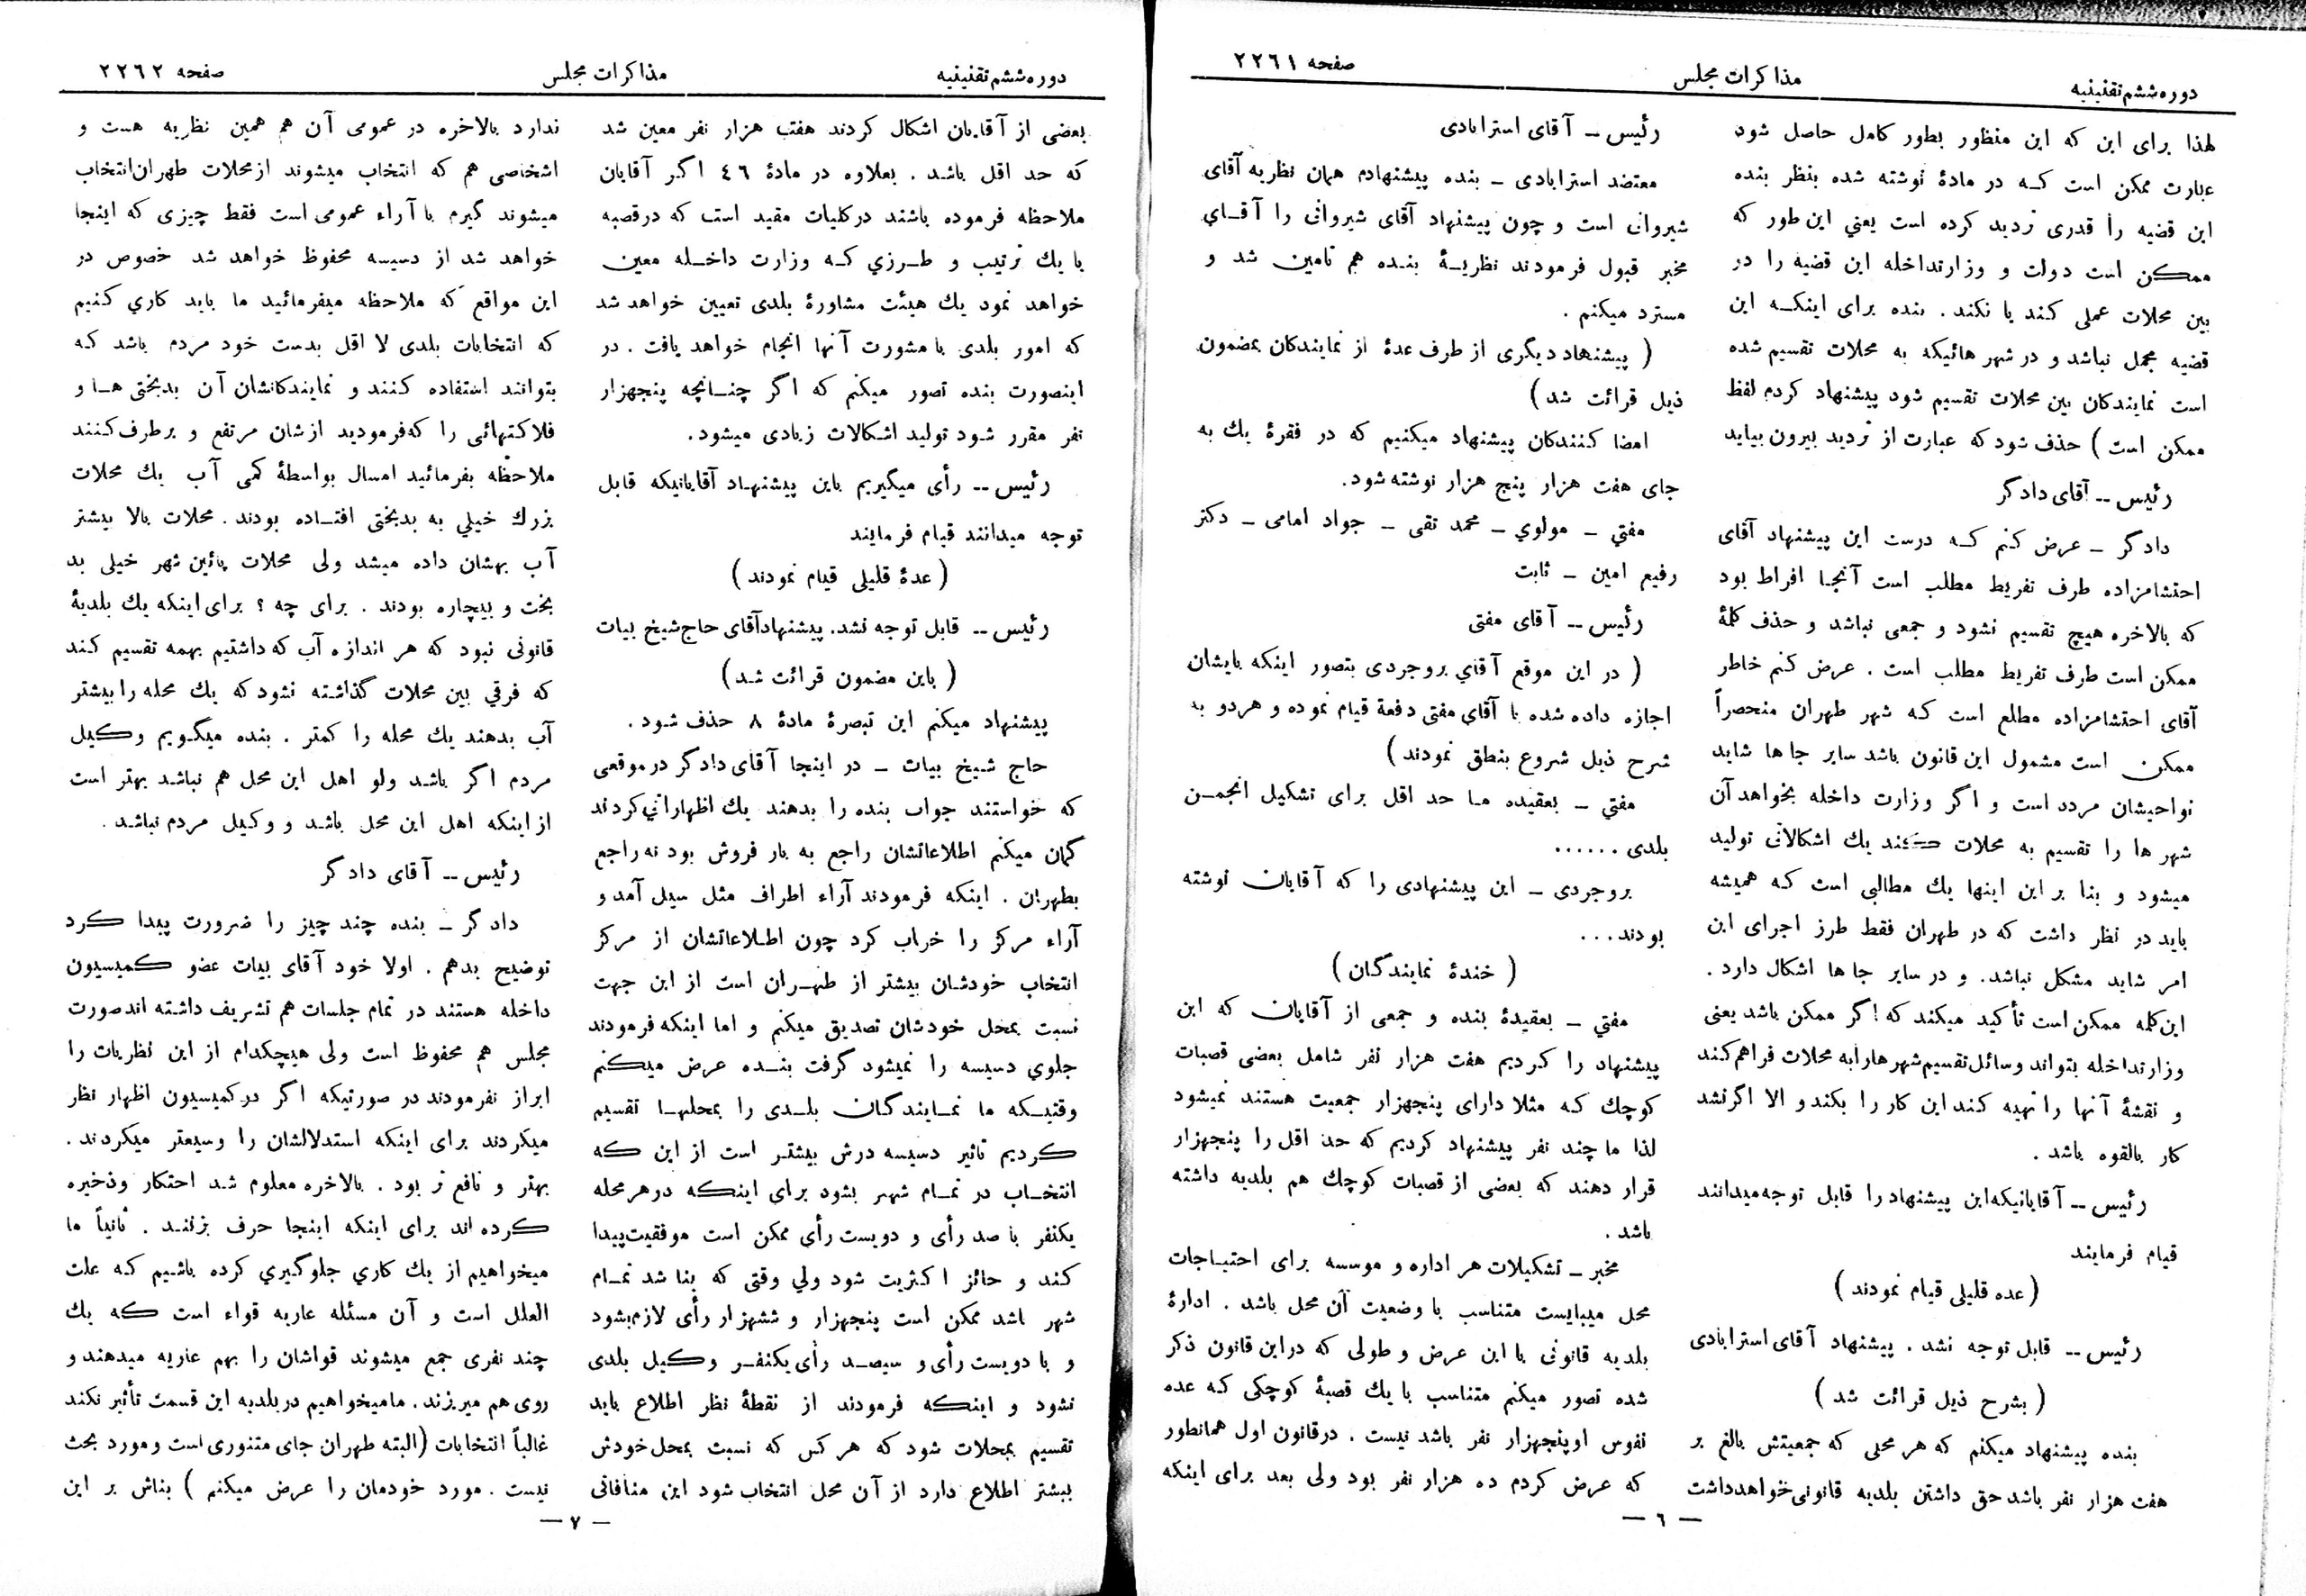 دوره ششم تقنینیه
مذاکرات مجلس
صفحه ۲۲۶۱
لهذا برای این که این منظور بطور کامل حاصل شود
عبارت ممکن است کـه در مادهٔ نوشته شده بنظر بنده
این قضیه را قدری تردید کرده است یعنی این طور که
ممکن است دولت و وزارتداخله این قضیه را در
بین محلات عملی کند یا نکند . بنده برای اینکـه این
قضیه مجمل نباشد و در شهرهائیکه به محلات تقسیم شده
است نمایندکان بین محلات تقسیم شود پیشنهاد کردم لفظ
ممکن است ) حذف شود که عبارت از تردید بیرون بیاید
رئیس ــ آقای دادگر
دادگر ــ عرض کنم کـه درست این پیشنهاد آقای
احتشامزاده طرف تفریط مطلب است آنجا افراط بود
که بالاخره هیچ تقسیم نشود و جمعی نباشد و حذف کلمهٔ
ممکن است طرف تفریط مطلب است . عرض کنم خاطر
آقای احتشامزاده مطلع است کـه شهر طهران منحصراً
ممکن است مشمول این قانون باشد سایر جاها شاید
نواحیشان مردد است و اگر وزارت داخله بخواهد آن
شهر ها را تقسیم به محلات کند یك اشکالاتی تولید
میشود و بنا بر این اینها یك مطالبی است کـه همیشه
باید در نظر داشت که در طهران فقط طرز اجرای این
امر شاید مشکل نباشد. و در سایر جاها اشکال دارد .
این کلمه ممکن است تأکید میکند که اگر ممکن باشد یعنی
وزارتداخله بتواند وسائل تقسیم شهرها را به محلات فراهم کند
و نقشهٔ آنها را تهیه کند این کار را بکند و الا اگر نشد
کار بالقوه باشد .
رئیس ــ آقایانیکه این پیشنهاد را قابل توجه میدانند
قیام فرمایند
( عده قلیلی قیام نمودند )
رئیس ــ قابل توجه نشد . پیشنهاد آقای استرابادی
( بشرح ذیل قرائت شد )
بنده پیشنهاد میکنم که هر محلی که جمعیتش بالغ بر
هفت هزار نفر باشد حق داشتن بلدیه قانونی خواهد داشت
رئیس ــ آقای استرابادی
معتضد استرابادی ــ بنده پیشنهادم همان نظریه آقای
شیروانی است و چون پیشنهاد آقای شیروانی را آقـای
مخبر قبول فرمودند نظریـهٔ بنـده هم تأمین شد و
مسترد میکنم .
( پیشنهاد دیگری از طرف عدهٔ از نمایندکان بمضمون
ذیل قرائت شد )
امضا کنندکان پیشنهاد میکنیم که در فقرهٔ یك به
جای هفت هزار پنج هزار نوشته شود.
مفتي ــ مولوي ــ محمد تقی ــ جواد امامی ــ دکتر
رفیع امین ــ ثابت
رئیس ــ آقای مفتی
( در این موقع آقاي بروجردی بتصور اینکه بایشان
اجازه داده شده با آقاي مفتی دفعة قیام نموده و هردو به
شرح ذیل شروع بنطق نمودند )
مفتي ــ بعقیده مـا حد اقل برای تشکیل انجمـن
بلدی ......
بروجردی ــ این پیشنهادی را که آقایان نوشته
بودند...
( خندهٔ نمایندگان )
مفتي ــ بعقیدهٔ بنده و جمعی از آقایان که این
پیشنهاد را کردیم هفت هزار نفر شامل بعضی قصبات
کوچك کـه مثلا دارای پنجهزار جمعیت هستند نمیشود
لذا ما چند نفر پیشنهاد کردیم که حد اقل را پنجهزار
قرار دهند که بعضی از قصبات کوچك هم بلدیه داشته
باشد .
مخبر ــ تشکیلات هر اداره و موسسه برای احتیـاجات
محل میبایست متناسب با وضعیت آن محل باشد . ادارهٔ
بلدیه قانونی با این عرض و طولی که در این قانون ذکر
شده تصور میکنم متناسب با یك قصبهٔ کوچکی کـه عده
نفوس او پنجهزار نفر باشد نیست . در قانون اول همانطور
که عرض کردم ده هزار نفر بود ولی بعد برای اینکه
— ٦ —
دوره ششم تقنینیه
مذاکرات مجلس
صفحه ۲۲۶۲
بعضی از آقایان اشکال کردند هفت هزار نفر معین شد
که حد اقل باشـد . بعلاوه در مادهٔ ٤٦ اکر آقایان
ملاحظه فرموده باشند در کلیات مقید است که در قصبه
با یك ترتیب و طـرزي کـه وزارت داخـله معین
خواهد نمود یك هیئت مشاورهٔ بلدی تعیین خواهد شد
که امور بلدی با مشورت آنها انجام خواهد یافت . در
اینصورت بنده تصور میکنم که اگر چنـانچه پنجهزار
نفر مقرر شود تولید اشکالات زیادی میشود.
رئیس ــ رأی میگیریم باین پیشنهـاد آقایانیکه قابل
توجه میدانند قیام فرمایند
( عدهٔ قلیلی قیام نمودند )
رئیس ــ قابل توجه نشد. پیشنهاد آقای حاج شیخ بیات
( باین مضمون قرائت شـد )
پیشنهاد میکنم این تبصرهٔ مادهٔ ۸ حذف شود .
حاج شیخ بیات ــ در اینجا آقای دادگر در موقعی
که خواستند جواب بنده را بدهند یك اظهاراتي کردند
گمان میکنم اطلاعاتشان راجع به بار فروش بود نه راجع
بطهران . اینکه فرمودند آراء اطراف مثل سیل آمد و
آراء مرکز را خراب کرد چون اطلاعاتشان از مرکز
انتخاب خودشان بیشتر از طهـران است از این جهت
نسبت بمحل خودشان تصدیق میکنم و اما اینکه فرمودند
جلوي دسیسه را نمیشود گرفت بنـده عرض میکنم
وقتیـکه ما نمـایندگـان بلـدی را بمحلهـا تقسیم
کردیم تاثیر دسیسه درش بیشتـر است از این که
انتخـاب در تمـام شهـر بشود برای اینکه در هر محله
یکنفر با صد رأی و دویست رأی ممکن است موفقیت پیدا
کند و حائز اکثریت شود ولی وقتی که بنا شد تمـام
شهر باشد ممکن است پنجهزار و ششهزار رأی لازم بشود
و با دویست رأی و سیصـد رأی یکنفـر وکیل بلدی
نشود و اینکه فرمودند از نقطهٔ نظر اطلاع باید
تقسیم بمحلات شود که هر کس که نسبت بمحل خودش
بیشتر اطلاع دارد از آن محل انتخاب شود این منافاتی
ندارد بالاخره در عمومی آن هم همین نظریه هست و
اشخاصی هم که انتخاب میشوند از محلات طهران انتخاب
میشوند گیرم با آراء عمومی است فقط چیزی که اینجا
خواهد شد از دسیسه محفوظ خواهد شد خصوص در
این مواقع که ملاحظه میفرمائید ما باید کاري کنیم
که انتخابات بلدی لا اقل بدست خود مردم باشد کـه
بتوانند استفاده کنند و نمایندکانشان آن بدبختی هـا و
فلاکتهائی را که فرمودید ازشان مرتفع و برطرف کنند
ملاحظه بفرمائید امسال بواسطهٔ کمی آب یك محلات
بزرك خیلي به بدبختی افتـاده بودند . محلات بالا بیشتر
آب بهشان داده میشد ولی محلات پائین شهر خیلی بد
بخت و بیچاره بودند . برای چه ؟ برای اینکه یك بلدیهٔ
قانونی نبود که هر اندازه آب که داشتیم بهمه تقسیم کند
که فرقي بین محلات گذاشته نشود که یك محله را بیشتر
آب بدهند یك محله را کمتر . بنده میگـویم وکیل
مردم اکر باشد ولو اهل این محل هم نباشد بهتر است
از اینکه اهل این محل باشـد و وکیل مردم نباشـد .
رئیس ــ آقای دادگر
دادگر ــ بنده چند چیز را ضرورت پیدا کرد
توضیح بدهم . اولا خود آقای بیات عضو کمیسیون
داخله هستند در تمام جلسات هم تشریف داشته اند صورت
مجلس هم محفوظ است ولی هیچکدام از این نظریات را
ابراز نفرمودند در صورتیکه اگر در کمیسیون اظهار نظر
میکردند برای اینکه استدلالشان را وسیعتر میکردند .
بهتر و نافع تر بود . بالاخره معلوم شد احتکار و ذخیره
کرده اند برای اینکه اینجا حرف بزننـد . ثانیاً ما
میخواهیم از یك کاري جلوگیري کرده باشیم کـه علت
العلل است و آن مسئله عاریه قواء است که یك
چند نفری جمع میشوند قواشان را بهم عاریه میدهند و
روی هم میریزند . ما میخواهیم در بلدیه این قسمت تأثیر نکند
غالباً انتخابات (البته طهران جای متنوری است و مورد بحث
نیست . مورد خودمان را عرض میکنم ) بناش بر این
— ۷ —